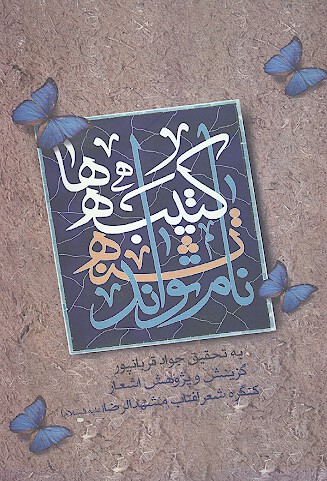 کتیبه‌ها
تشنه
نام تواند
به تحقیق جواد قربانپور
گزینش و پژوهش اشعار
کنگره شعر آفتاب مشهدالرضا (علیه السلام)